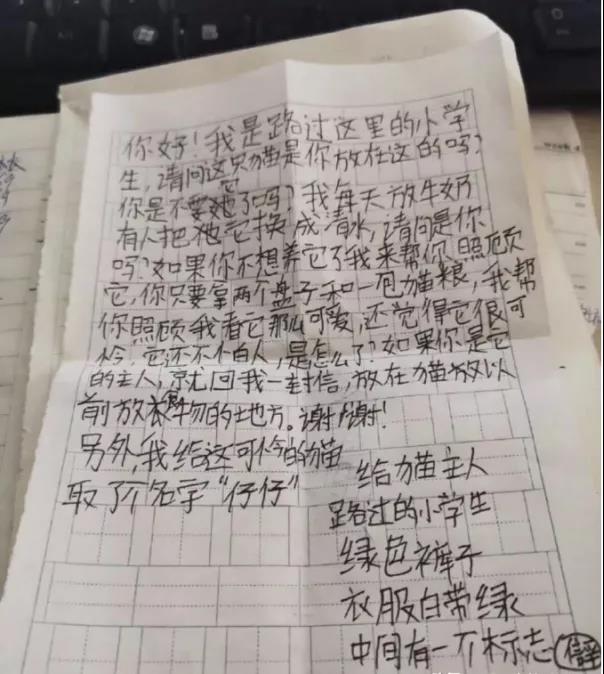 你好！我是路过这里的小学
生，请问这只猫是你放在这的吗？
你是不要它了吗？我每天放牛奶
有人把它换成清水，请问是你
吗？如果你不想养它了我来帮你照顾
它，你只要拿两个盘子和一包猫粮，我帮
你照顾我看它那么可爱，还觉得它很可
怜，它还不怕人，是怎么了？如果你是它
的主人，就回我一封信，放在猫放以
前放食物的地方。谢谢！
另外，我给这可怜的猫
取了个名字“仔仔”
给猫主人
路过的小学生
绿色裤子
衣服白带绿
中间有一个标志